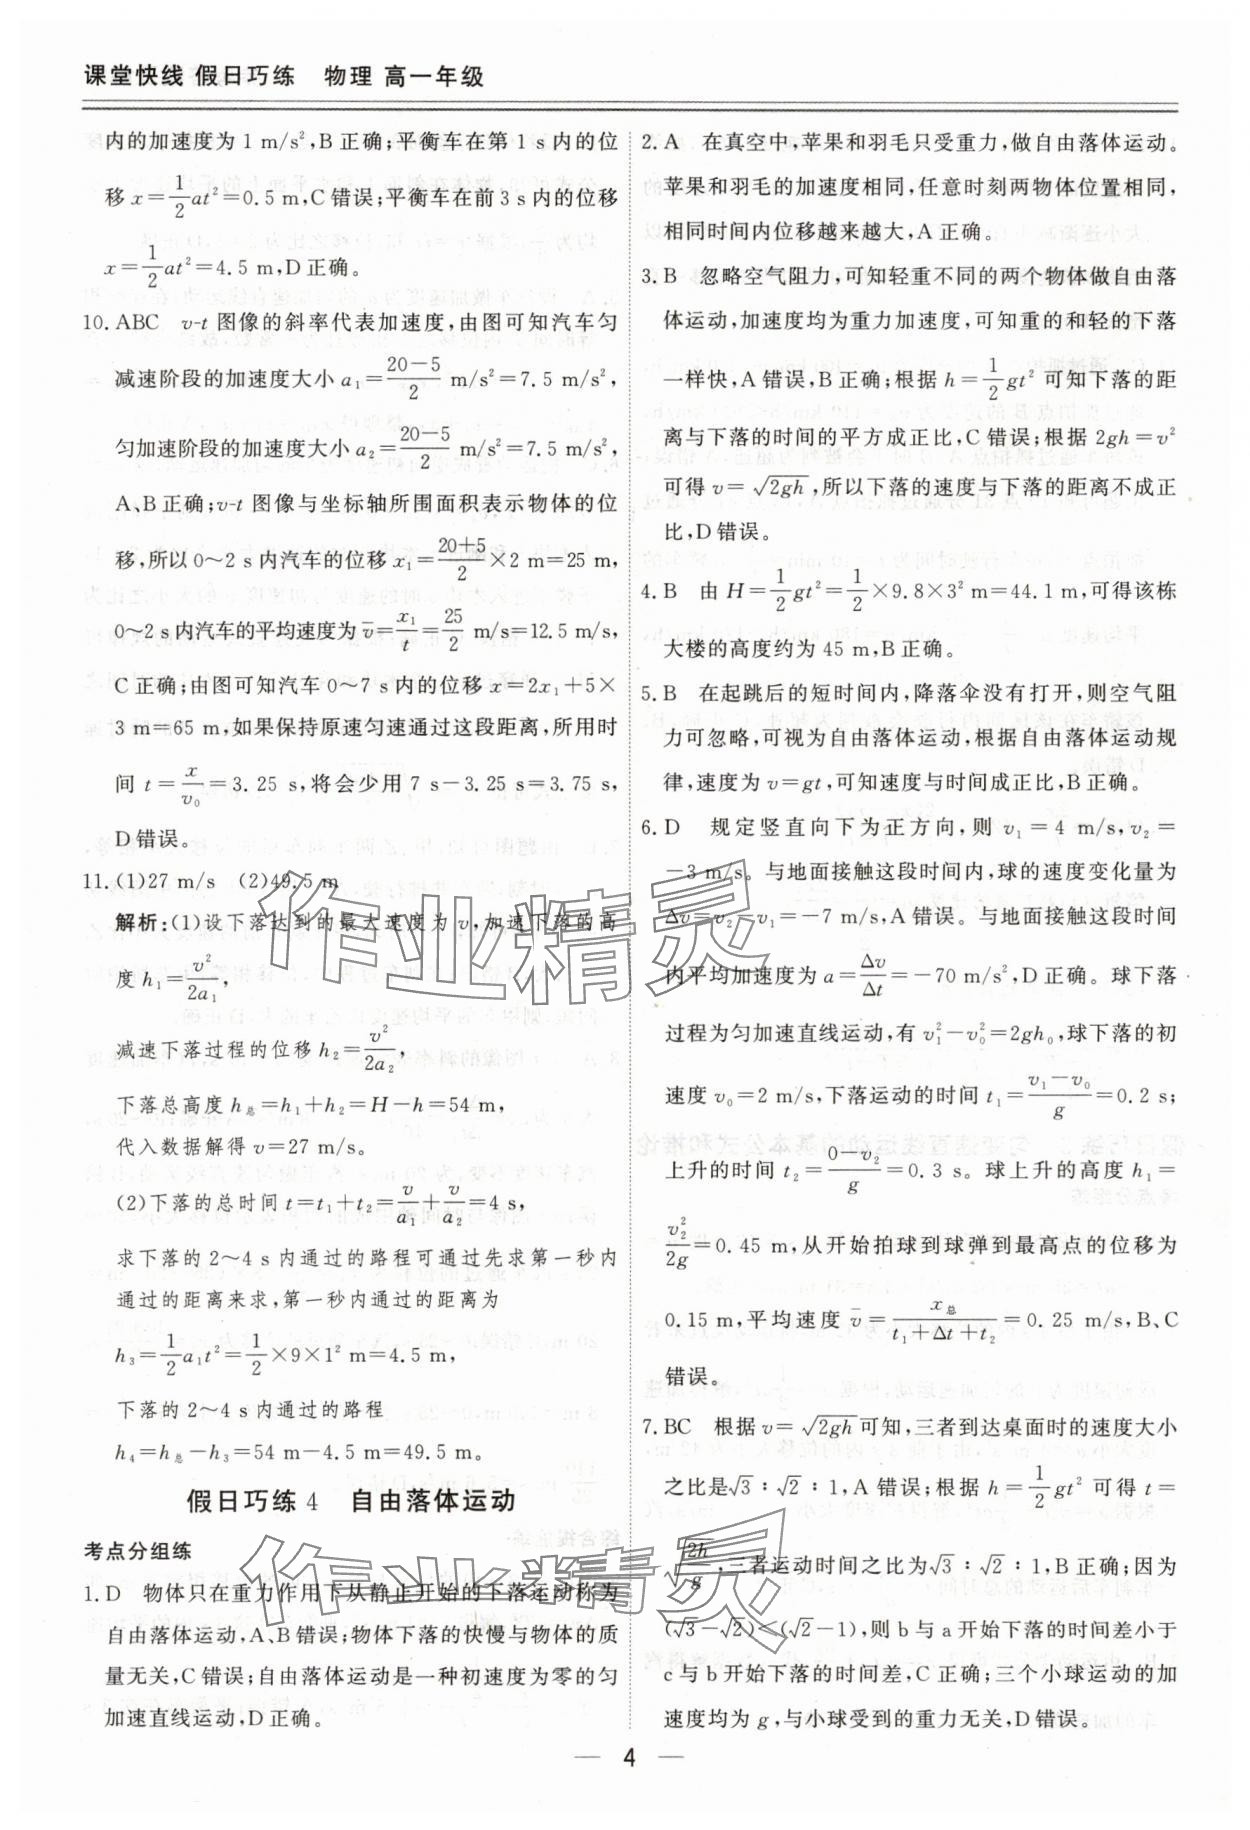 课堂快线 假日巧练 物理 高一年级
内的加速度为 1 m/s²，B 正确；平衡车在第 1 s 内的位
移 x=1/2at²=0.5 m，C 错误；平衡车在前 3 s 内的位移
x=1/2at²=4.5 m，D 正确。
10. ABC v-t 图像的斜率代表加速度，由图可知汽车匀
减速阶段的加速度大小 a₁=(20-5)/2 m/s²=7.5 m/s²，
匀加速阶段的加速度大小 a₂=(20-5)/2 m/s²=7.5 m/s²，
A、B 正确；v-t 图像与坐标轴所围面积表示物体的位
移，所以 0～2 s 内汽车的位移 x₁=(20+5)/2×2 m=25 m，
0～2 s 内汽车的平均速度为 v̄=x₁/t=25/2 m/s=12.5 m/s，
C 正确；由图可知汽车 0～7 s 内的位移 x=2x₁+5×
3 m=65 m，如果保持原速匀速通过这段距离，所用时
间 t=x/v₀=3.25 s，将会少用 7 s-3.25 s=3.75 s，
D 错误。
11. (1)27 m/s (2)49.5 m
解析：(1)设下落达到的最大速度为 v，加速下落的高
度 h₁=v²/2a₁，
减速下落过程的位移 h₂=v²/2a₂，
下落总高度 h总=h₁+h₂=H-h=54 m，
代入数据解得 v=27 m/s。
(2)下落的总时间 t=t₁+t₂=v/a₁+v/a₂=4 s，
求下落的 2～4 s 内通过的路程可通过先求第一秒内
通过的距离来求，第一秒内通过的距离为
h₃=1/2a₁t²=1/2×9×1² m=4.5 m，
下落的 2～4 s 内通过的路程
h₄=h总-h₃=54 m-4.5 m=49.5 m。
假日巧练 4 自由落体运动
考点分组练
1. D 物体只在重力作用下从静止开始的下落运动称为
自由落体运动，A、B 错误；物体下落的快慢与物体的质
量无关，C 错误；自由落体运动是一种初速度为零的匀
加速直线运动，D 正确。
2. A 在真空中，苹果和羽毛只受重力，做自由落体运动。
苹果和羽毛的加速度相同，任意时刻两物体位置相同，
相同时间内位移越来越大，A 正确。
3. B 忽略空气阻力，可知轻重不同的两个物体做自由落
体运动，加速度均为重力加速度，可知重的和轻的下落
一样快，A 错误，B 正确；根据 h=1/2gt² 可知下落的距
离与下落的时间的平方成正比，C 错误；根据 2gh=v²
可得 v=√(2gh)，所以下落的速度与下落的距离不成正
比，D 错误。
4. B 由 H=1/2gt²=1/2×9.8×3² m=44.1 m，可得该栋
大楼的高度约为 45 m，B 正确。
5. B 在起跳后的短时间内，降落伞没有打开，则空气阻
力可忽略，可视为自由落体运动，根据自由落体运动规
律，速度为 v=gt，可知速度与时间成正比，B 正确。
6. D 规定竖直向下为正方向，则 v₁=4 m/s，v₂=
-3 m/s。与地面接触这段时间内，球的速度变化量为
Δv=v₂-v₁=-7 m/s，A 错误。与地面接触这段时间
内平均加速度为 a=Δv/Δt=-70 m/s²，D 正确。球下落
过程为匀加速直线运动，有 v₁²-v₀²=2gh₀，球下落的初
速度 v₀=2 m/s，下落运动的时间 t₁=(v₁-v₀)/g=0.2 s；
上升的时间 t₂=(0-v₂)/g=0.3 s。球上升的高度 h₁=
v₂²/2g=0.45 m，从开始拍球到球弹到最高点的位移为
0.15 m，平均速度 v̄=x总/(t₁+Δt+t₂)=0.25 m/s，B、C
错误。
7. BC 根据 v=√(2gh) 可知，三者到达桌面时的速度大小
之比是√3∶√2∶1，A 错误；根据 h=1/2gt² 可得 t=
√(2h/g)，三者运动时间之比为√3∶√2∶1，B 正确；因为
(√3-√2)<(√2-1)，则 b 与 a 开始下落的时间差小于
c 与 b 开始下落的时间差，C 正确；三个小球运动的加
速度均为 g，与小球受到的重力无关，D 错误。
— 4 —
作业精灵
作业精灵